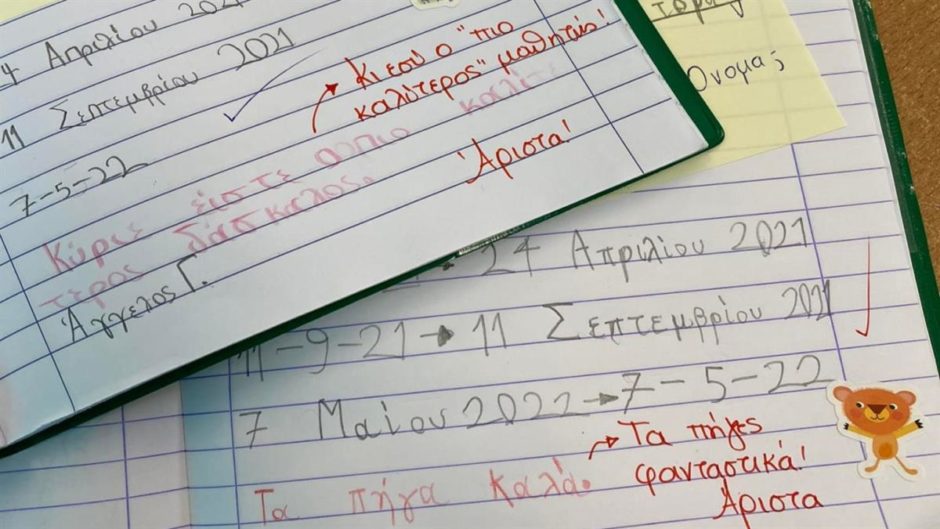 Απριλίου
11 Σεπτεμβρίου 2021
7-5-22
Κι εσύ ο "πιο
καλύτερος" μαθητής!
Κύριε είστε ο πιο καλύ
τερος δάσκαλος.
Άριστα!
Άγγελος Γ.
Όνομα;
24 Απριλίου 2021
11-9-21→11 Σεπτεμβρίου 2021
7 Μαΐου 2022→7-5-22
Τα πήγα καλά.
Τα πήγες
φανταστικά!
Άριστα